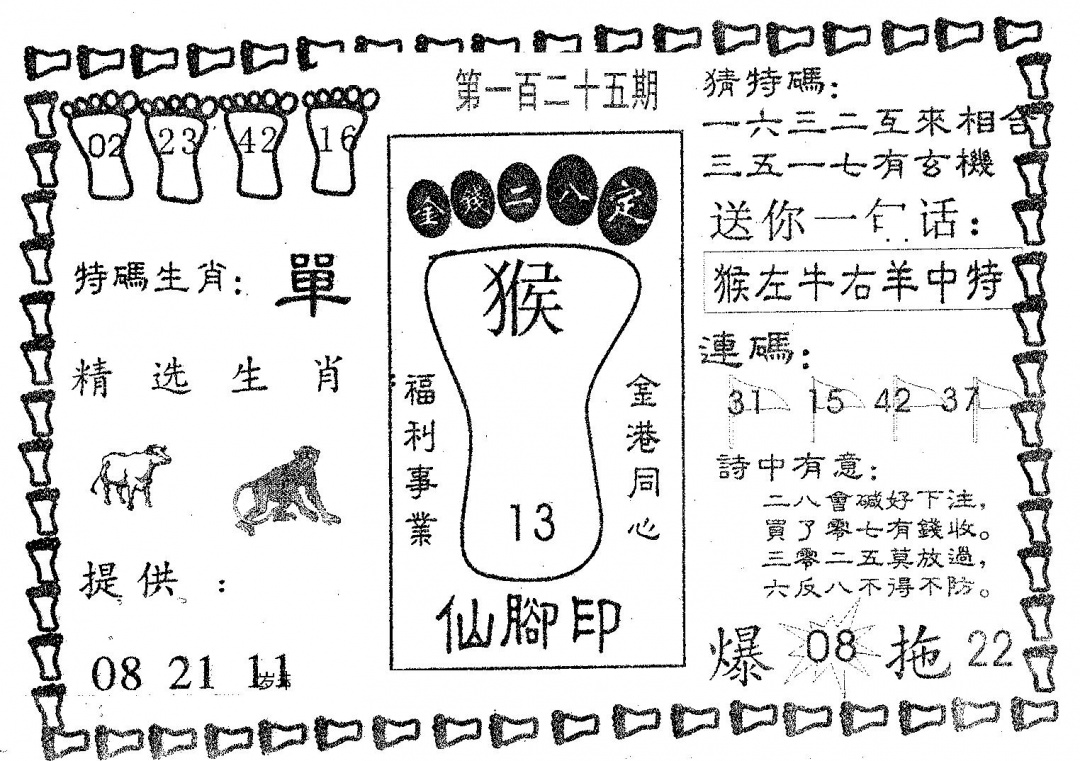 第一百二十五期
02 23 42 16
特碼生肖：單
精选生肖
提供：
08 21 11
金錢二八定
猴
福利事業
金港同心
13
仙腳印
猜特碼：
一六三二互來相合
三五一七有玄機
送你一句话：
猴左牛右羊中特
連碼：
31 15 42 37
詩中有意：
二八會碱好下注，
買了零七有錢收。
三零二五莫放過，
六反八不得不防。
爆 08 拖 22